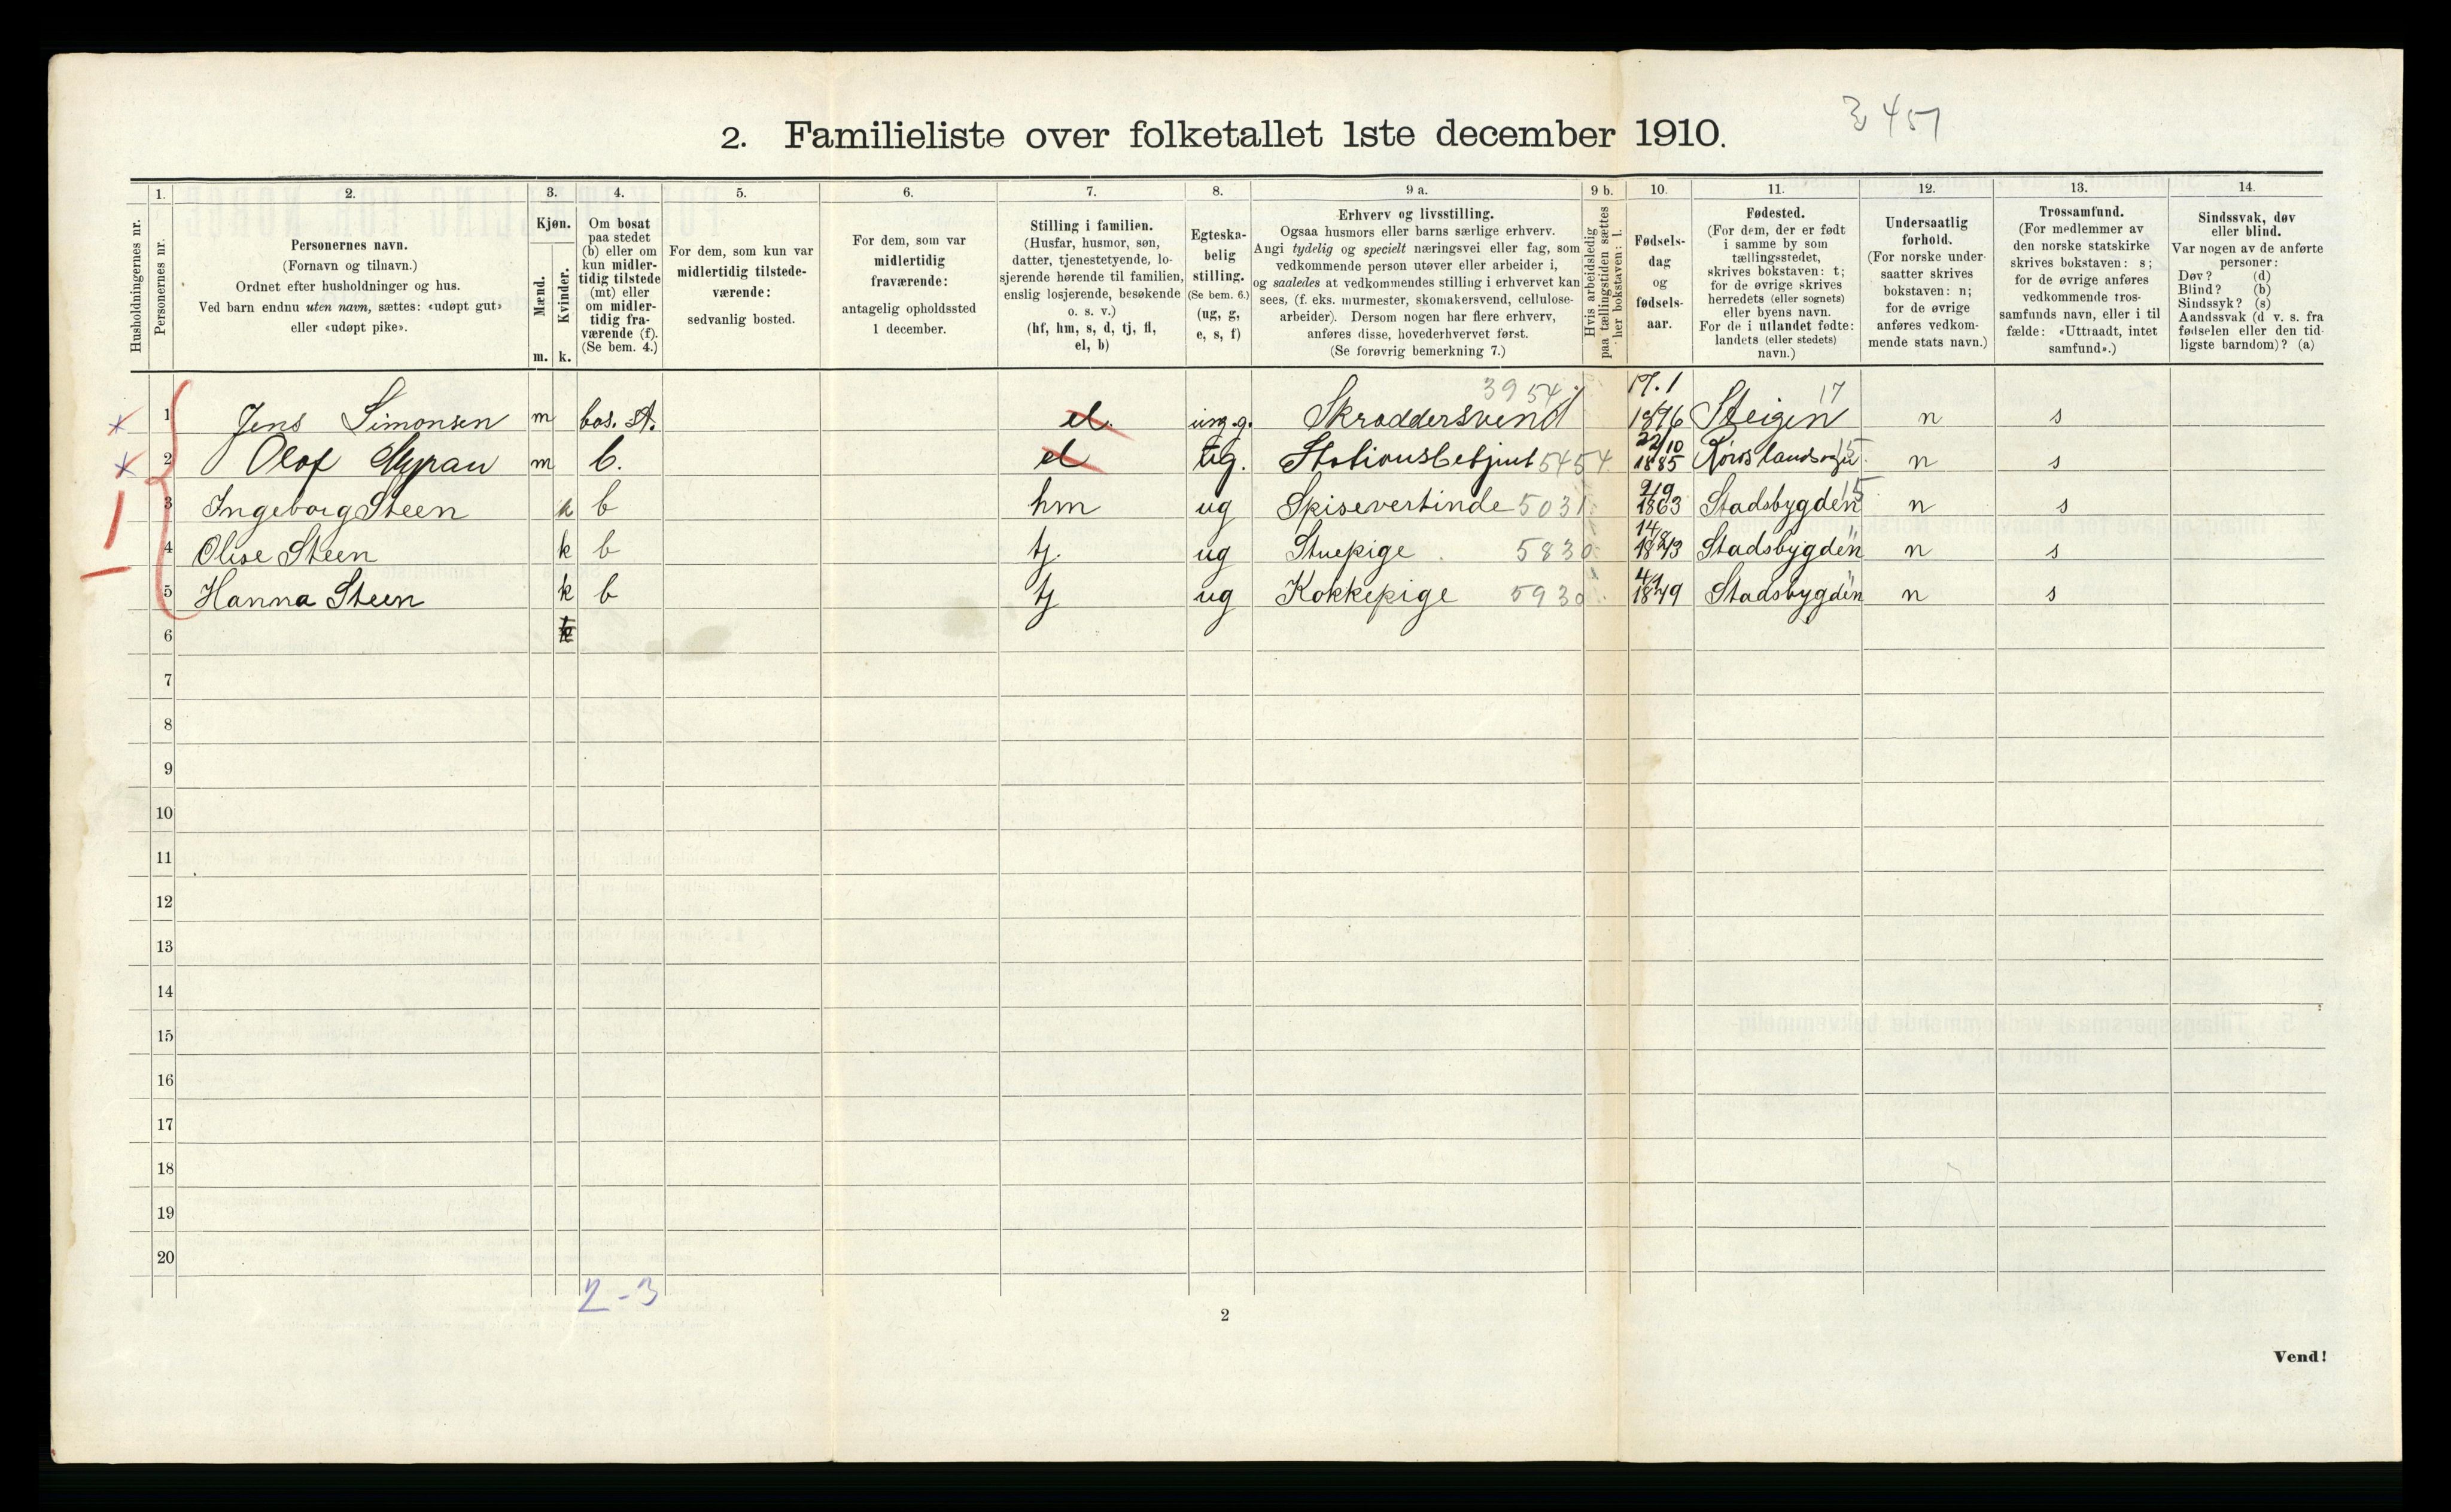 3451
2. Familieliste over folketallet 1ste december 1910.
Husholdningernes nr.
1. Personernes nr.
2. Personernes navn. (Fornavn og tilnavn.) Ordnet efter husholdninger og hus. Ved barn endnu uten navn, sættes: «udøpt gut» eller «udøpt pike».
3. Kjøn. Mænd. m. Kvinder. k.
4. Om bosat paa stedet (b) eller om kun midlertidig tilstede (mt) eller om midlertidig fraværende (f). (Se bem. 4.)
5. For dem, som kun var midlertidig tilstedeværende: sedvanlig bosted.
6. For dem, som var midlertidig fraværende: antagelig opholdssted 1 december.
7. Stilling i familien. (Husfar, husmor, søn, datter, tjenestetyende, losjerende hørende til familien, enslig losjerende, besøkende o. s. v.) (hf, hm, s, d, tj, fl, el, b)
8. Egteskabelig stilling. (Se bem. 6.) (ug, g, e, s, f)
9 a. Erhverv og livsstilling. Ogsaa husmors eller barns særlige erhverv. Angi tydelig og specielt næringsvei eller fag, som vedkommende person utøver eller arbeider i, og saaledes at vedkommendes stilling i erhvervet kan sees, (f. eks. murmester, skomakersvend, cellulosearbeider). Dersom nogen har flere erhverv, anføres disse, hovederhvervet først. (Se forøvrig bemerkning 7.)
9 b. Hvis arbeidsledig paa tællingstiden sættes her bokstaven: l.
10. Fødselsdag og fødselsaar.
11. Fødested. (For dem, der er født i samme by som tællingsstedet, skrives bokstaven: t; for de øvrige skrives herredets (eller sognets) eller byens navn. For de i utlandet fødte: landets (eller stedets) navn.)
12. Undersaatlig forhold. (For norske undersaatter skrives bokstaven: n; for de øvrige anføres vedkommende stats navn.)
13. Trossamfund. (For medlemmer av den norske statskirke skrives bokstaven: s; for de øvrige anføres vedkommende trossamfunds navn, eller i tilfælde: «Uttraadt, intet samfund».)
14. Sindssvak, døv eller blind. Var nogen av de anførte personer: Døv? (d) Blind? (b) Sindssyk? (s) Aandssvak (d v. s. fra fødselen eller den tidligste barndom)? (a)
1 Jens Simonsen m bos. st. el. ung.g. Skræddersvend 3954 17.1 1876 Steigen 17 n s
2 Olaf Myran m b. el ug. Stationsbetjent 5454 22/10 1885 n s
3 Ingeborg Steen k b hm ug Spisevertinde 5031 9/9 1863 Stadsbygden 15 n s
4 Olise Steen k b tj. ug Stuepige 5830 14/8 1843 Stadsbygden " n s
5 Hanna Steen k b tj ug Kokkepige 5930 1849 Stadsbygden " n s
6
7
8
9
10
11
12
13
14
15
16
17
18
19
20
2-3
2
Vend!